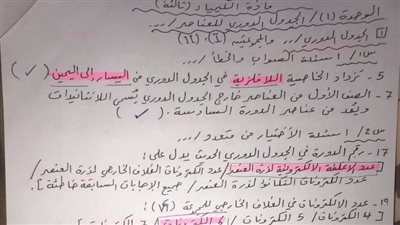 مادة الكيمياء (ثالثة)
الوحدة (١) / الجدول الدوري للعناصر /...
١ الجدول الدوري /.. والمجموعتيه (I , VII)
س١/ أسئلة الصواب والخطأ /...
٥ - تزداد الخاصية اللافلزية في الجدول الدوري من اليسار إلى اليمين ( ✓ )
٧ - الصف الأول من العناصر خارج الجدول الدوري يسمى اللانثانيدات
ويُعد من عناصر الدورة السادسة. ( ✓ )
س٢/ أسئلة الاختيار من متعدد /...
١٧ - رقم الدورة في الجدول الدوري الحديث يدل على:
[عدد الأغلفة الإلكترونية لذرة العنصر / عدد إلكترونات الغلاف الخارجي لذرة العنصر /
عدد إلكترونات التكافؤ لذرة العنصر / جميع الإجابات السابقة خاطئة].
١٩ - عدد الإلكترونات في الغلاف الخارجي للمجموعة (VI):
[4 إلكترونات / 5 إلكترونات / 6 إلكترونات / 7 إلكترونات]